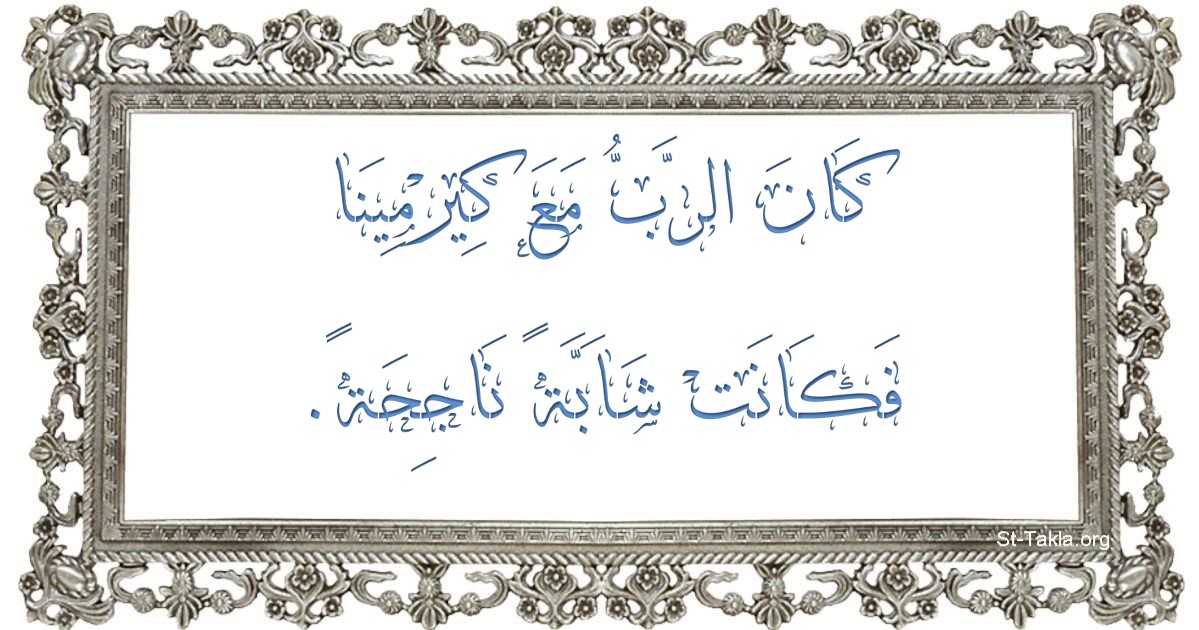 كَانَ الرَّبُّ مَعَ كِيرْمِينَا
فَكَانَتْ شَابَّةً نَاجِحَةً.
St-Takla.org